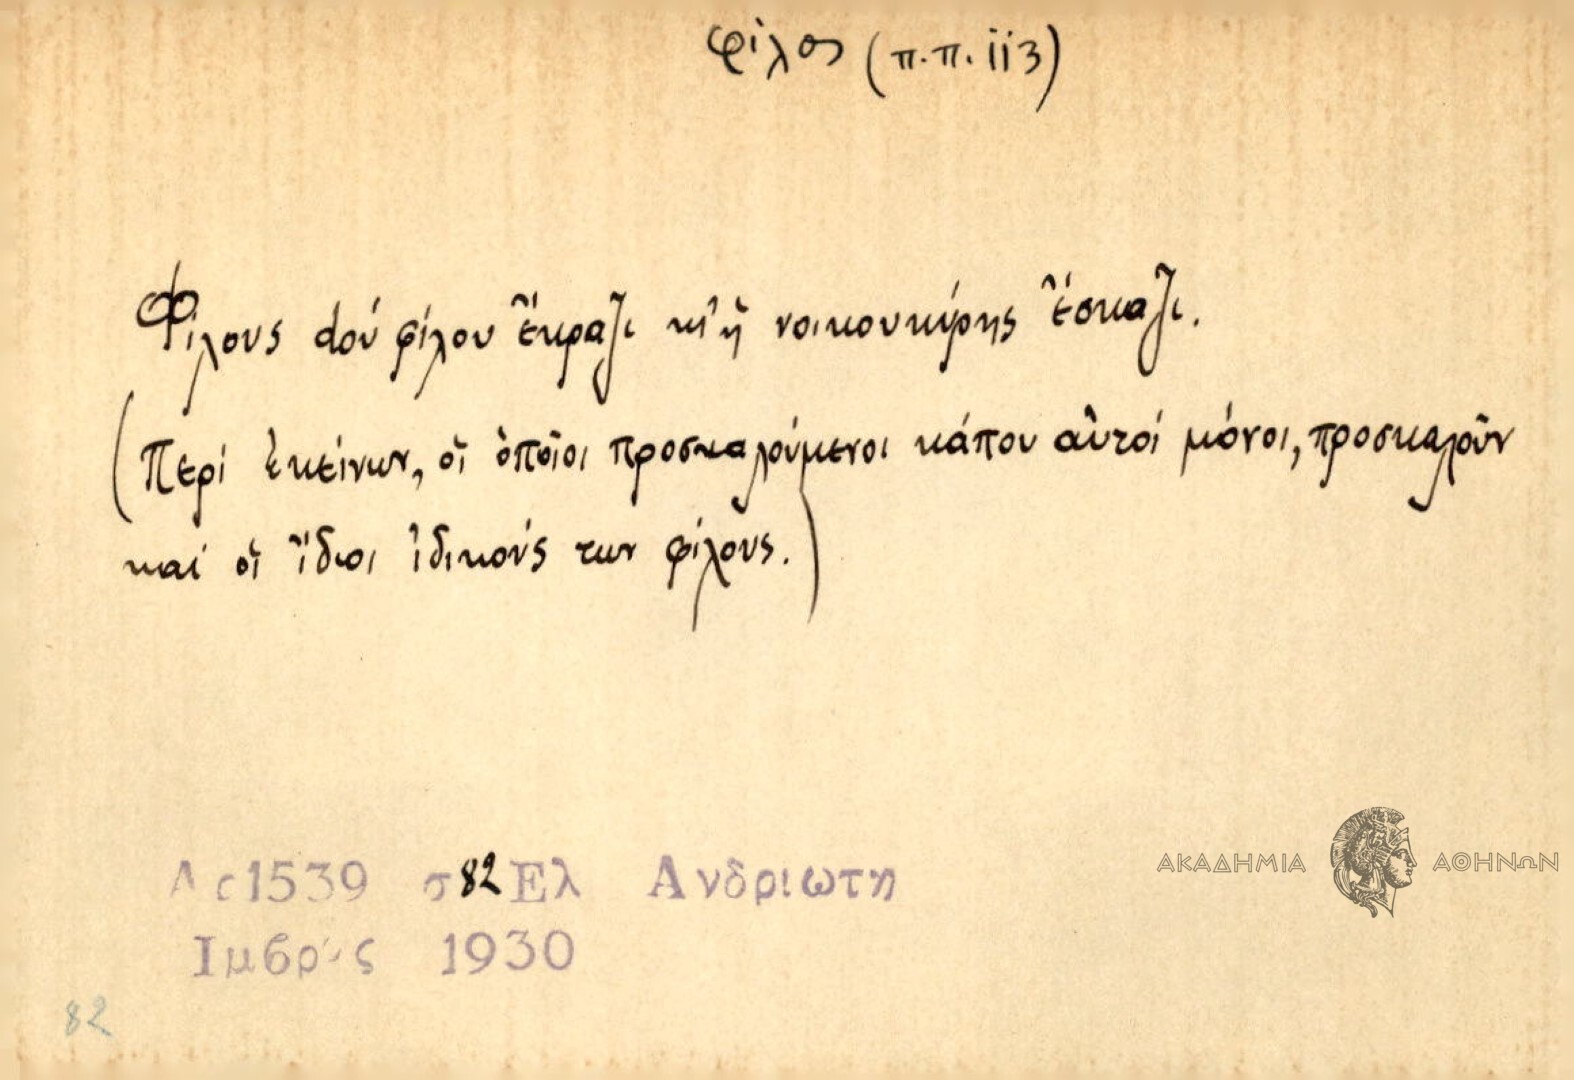 φίλος (π.π. 113)
Φίλους dού φίλου ἔκραζι κι' ἡ νοικουκύρης ἔσκαζι.
(Περί ἐκείνων, οἵ ὁποῖοι προσκαλούμενοι κάπου αὐτοί μόνοι, προσκαλοῦν
καί οἵ ἴδιοι ἰδικούς των φίλους.)
Λς 1539 σ 82 Ελ Ανδριωτη
Ιμβρος 1930
82
ΑΚΑΔΗΜΙΑ ΑΘΗΝΩΝ